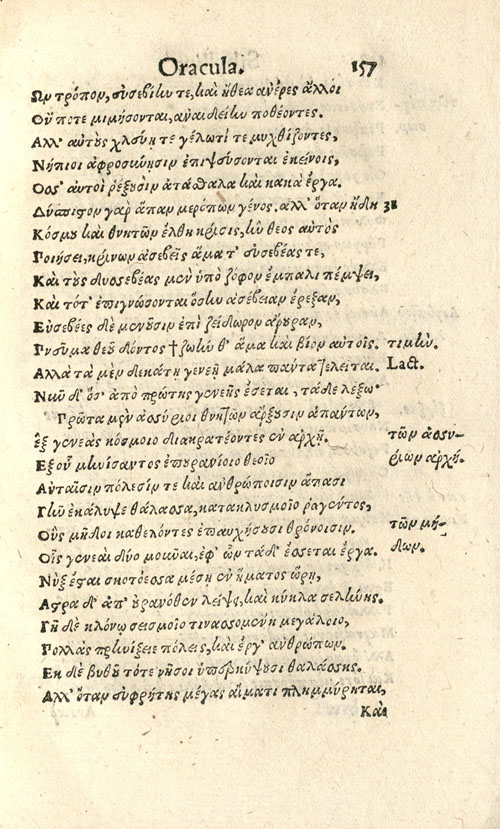 Oracula. 157
Ὧν τρόπον, εὐσεβίην τε, καὶ ἤθεα ἀνέρες ἄλλοι
Οὔ ποτε μιμήσονται, ἀναιδείην ποθέοντες.
Ἀλλ' αὐτοὺς χλεύῃ τε γέλωτί τε μυχθίζοντες,
Νήπιοι ἀφροσύνῃσιν ἐπιψεύσονται ἐκείνοις,
Ὅσσ' αὐτοὶ ῥέξουσιν ἀτάσθαλα καὶ κακὰ ἔργα.
Δύσπιστον γὰρ ἅπαν μερόπων γένος. ἀλλ' ὅταν ἤδη 3
Κόσμου καὶ θνητῶν ἔλθῃ κρίσις, ἣν θεὸς αὐτὸς
Ποιήσει, κρίνων ἀσεβεῖς ἅμα τ' εὐσεβέας τε,
Καὶ τοὺς δυσσεβέας μὲν ὑπὸ ζόφον ἔμπαλι πέμψει,
Καὶ τότ' ἐπιγνώσονται ὅσην ἀσέβειαν ἔρεξαν,
Εὐσεβέες δὲ μενοῦσιν ἐπὶ ζείδωρον ἄρουραν,
Πνεῦμα θεοῦ δόντος † ζωὴν θ' ἅμα καὶ βίον αὐτοῖς. τιμὴν.
Ἀλλὰ τὰ μὲν δεκάτῃ γενεῇ μάλα πάντα τελεῖται. Lact.
Νῦν δ' ὅσ' ἀπὸ πρώτης γενεῆς ἔσεται, τάδε λέξω·
Πρῶτα μὲν ἀσσύριοι θνητῶν ἄρξουσιν ἁπάντων,
ἓξ γενεὰς κόσμοιο διακρατέοντες ἐν ἀρχῇ. τῶν ἀσσυ-
Ἐξ οὗ μηνίσαντος ἐπουρανίοιο θεοῖο ρίων ἀρχή.
Αὐταῖσιν πόλεσίν τε καὶ ἀνθρώποισιν ἅπασι
Γῆν ἐκάλυψε θάλασσα, κατακλυσμοῖο ῥαγέντος,
Οὓς μῆδοι καθελόντες ἐπαυχήσουσι θρόνοισιν. τῶν μή-
Οἷς γενεαὶ δύο μοῦναι, ἐφ' ὧν τάδ' ἔσσεται ἔργα. δων.
Νὺξ ἔσται σκοτόεσσα μέσῃ ἐν ἤματος ὥρῃ,
Ἄστρα δ' ἀπ' οὐρανόθεν λείψει, καὶ κύκλα σελήνης.
Γῆ δὲ κλόνῳ σεισμοῖο τινασσομένη μεγάλοιο,
Πολλὰς πρηνίξει πόλεις, καὶ ἔργ' ἀνθρώπων.
Ἐκ δὲ βυθοῦ τότε νῆσοι ὑπερκύψουσι θαλάσσης.
Ἀλλ' ὅταν εὐφρήτης μέγας αἵματι πλημμύρηται,
Καὶ